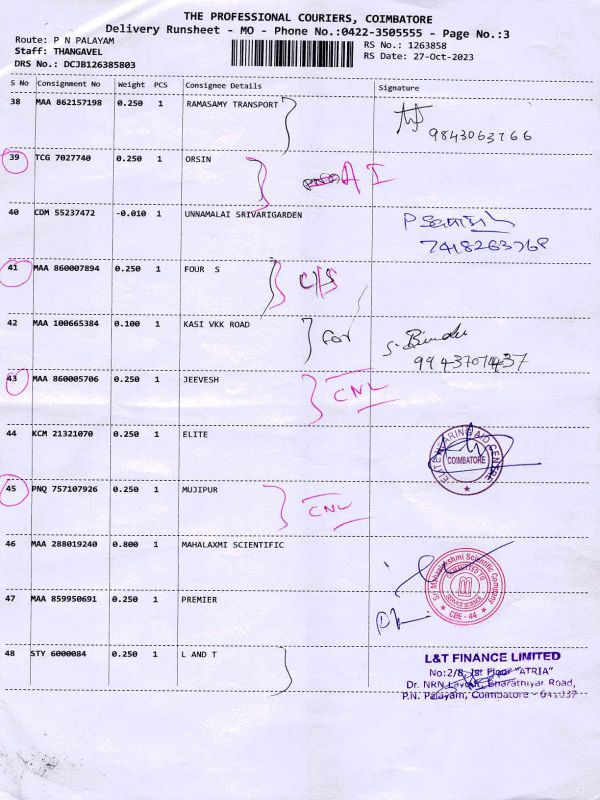 THE PROFESSIONAL COURIERS, COIMBATORE
Delivery Runsheet - MO - Phone No.:0422-3505555 - Page No.:3
Route: P N PALAYAM
Staff: THANGAVEL
DRS No.: DCJB126385803
RS No.: 1263858
RS Date: 27-Oct-2023
S No Consignment No Weight PCS Consignee Details Signature
38 MAA 862157198 0.250 1 RAMASAMY TRANSPORT
9843063766
39 TCG 7027740 0.250 1 ORSIN
A I
40 CDM 55237472 -0.010 1 UNNAMALAI SRIVARIGARDEN
7418263768
41 MAA 860007894 0.250 1 FOUR S C/S
42 MAA 100665384 0.100 1 KASI VKK ROAD For
S. Bindu
9943701437
43 MAA 860005706 0.250 1 JEEVESH CNL
44 KCM 21321070 0.250 1 ELITE
ELITE HEARING AID CENTRE
COIMBATORE
45 PNQ 757107926 0.250 1 MUJIPUR CNL
46 MAA 288019240 0.800 1 MAHALAXMI SCIENTIFIC
Sri Mahalakshmi Scientific Company
COMMITTED TO
SERVICE SCIENCE
CBE - 44
47 MAA 859950691 0.250 1 PREMIER
48 STY 6000084 0.250 1 L AND T
L&T FINANCE LIMITED
No:2/8, Ist Floor "ATRIA"
Dr. NRN Layout, Bharathiyar Road,
P.N. Palayam, Coimbatore - 641037